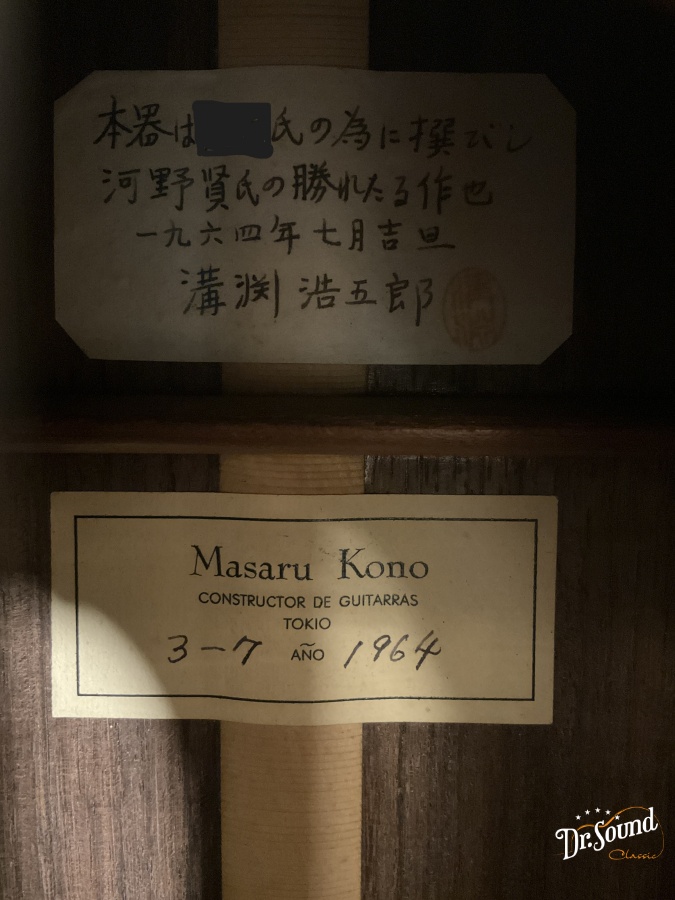 本器は 氏の為に撰びし
河野賢氏の勝れたる作也
一九六四年七月吉旦
溝渕浩五郎
Masaru Kono
CONSTRUCTOR DE GUITARRAS
TOKIO
3-7 AÑO 1964
Dr. Sound
Classic